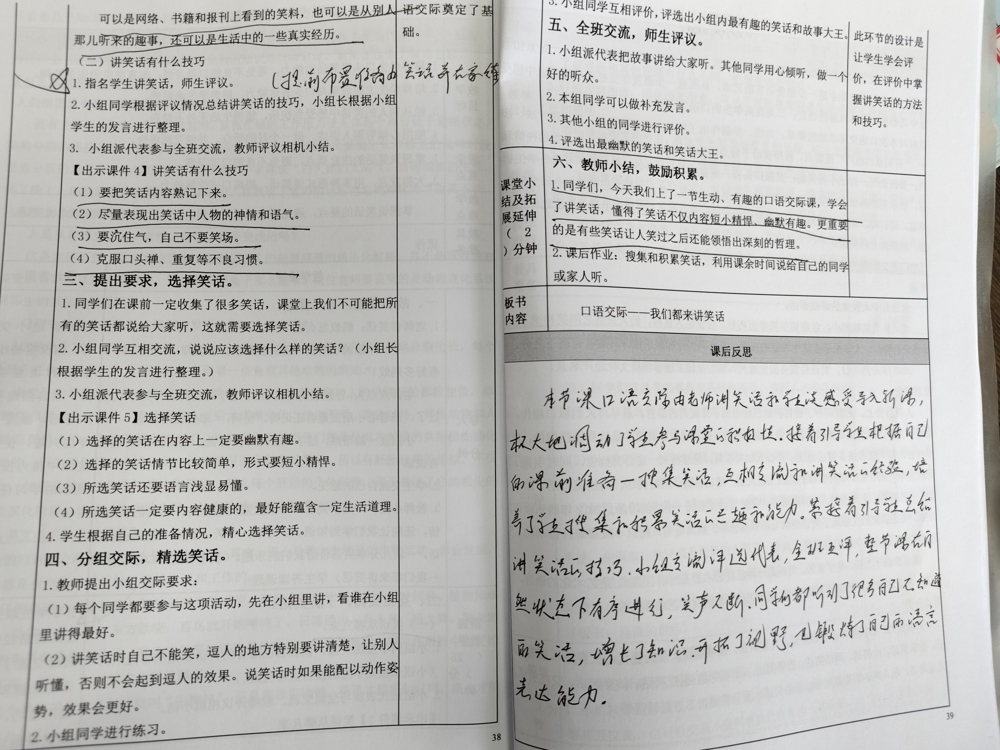 可以是网络、书籍和报刊上看到的笑料，也可以是从别人
那儿听来的趣事，还可以是生活中的一些真实经历。
（二）讲笑话有什么技巧
1.指名学生讲笑话，师生评议。
（提前布置
2.小组同学根据评议情况总结讲笑话的技巧，小组长根据小组
学生的发言进行整理。
3. 小组派代表参与全班交流，教师评议相机小结。
【出示课件 4】讲笑话有什么技巧
（1）要把笑话内容熟记下来。
（2）尽量表现出笑话中人物的神情和语气。
（3）要沉住气，自己不要笑场。
（4）克服口头禅、重复等不良习惯。
三、提出要求，选择笑话。
1.同学们在课前一定收集了很多笑话，课堂上我们不可能把所
有的笑话都说给大家听，这就需要选择笑话。
2.小组同学互相交流，说说应该选择什么样的笑话？（小组长
根据学生的发言进行整理。）
3.小组派代表参与全班交流，教师评议相机小结。
【出示课件 5】选择笑话
（1）选择的笑话在内容上一定要幽默有趣。
（2）选择的笑话情节比较简单，形式要短小精悍。
（3）所选笑话还要语言浅显易懂。
（4）所选笑话一定要内容健康的，最好能蕴含一定生活道理。
4.学生根据自己的准备情况，精心选择笑话。
四、分组交际，精选笑话。
1.教师提出小组交际要求：
（1）每个同学都要参与这项活动，先在小组里讲，看谁在小组
里讲得最好。
（2）讲笑话时自己不能笑，逗人的地方特别要讲清楚，让别人
听懂，否则不会起到逗人的效果。说笑话时如果能配以动作姿
势，效果会更好。
2.小组同学进行练习。
语交际奠定了基
础。
38
3.小组同学互相评价，评选出小组内最有趣的笑话和故事大王。
五、全班交流，师生评议。
1.小组派代表把故事讲给大家听。其他同学用心倾听，做一个
好的听众。
2.本组同学可以做补充发言。
3.其他小组的同学进行评价。
4.评选出最幽默的笑话和笑话大王。
此环节的设计是
让学生学会评
价，在评价中掌
握讲笑话的方法
和技巧。
课堂小
结及拓
展延伸
（ 2
）分钟
六、教师小结，鼓励积累。
1.同学们，今天我们上了一节生动、有趣的口语交际课，学会
了讲笑话，懂得了笑话不仅内容短小精悍、幽默有趣。更重要
的是有些笑话让人笑过之后还能领悟出深刻的哲理。
2.课后作业：搜集和积累笑话，利用课余时间说给自己的同学
或家人听。
板书
内容
口语交际——我们都来讲笑话
课后反思
本节课口语交际由老师讲笑话和学生谈感受导入新课，
极大地调动了学生参与课堂的积极性。接着引导学生根据自己
的课前准备一搜集笑话，互相交流和讲笑话的经验，培
养了学生搜集和积累笑话的兴趣和能力。紧接着引导学生总结
讲笑话的技巧，小组交流评选代表，全班互评，整节课在自
然状态下有序进行，笑声不断，同学们都听到了很多自己不知道
的笑话，增长了知识，开拓了视野，也锻炼了自己的语言
表达能力。
39